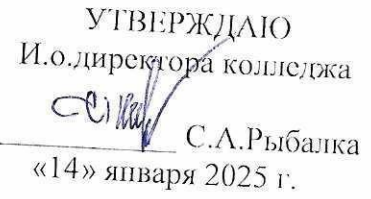 УТВЕРЖДАЮ
И.о.директора колледжа
С.А.Рыбалка
«14» января 2025 г.